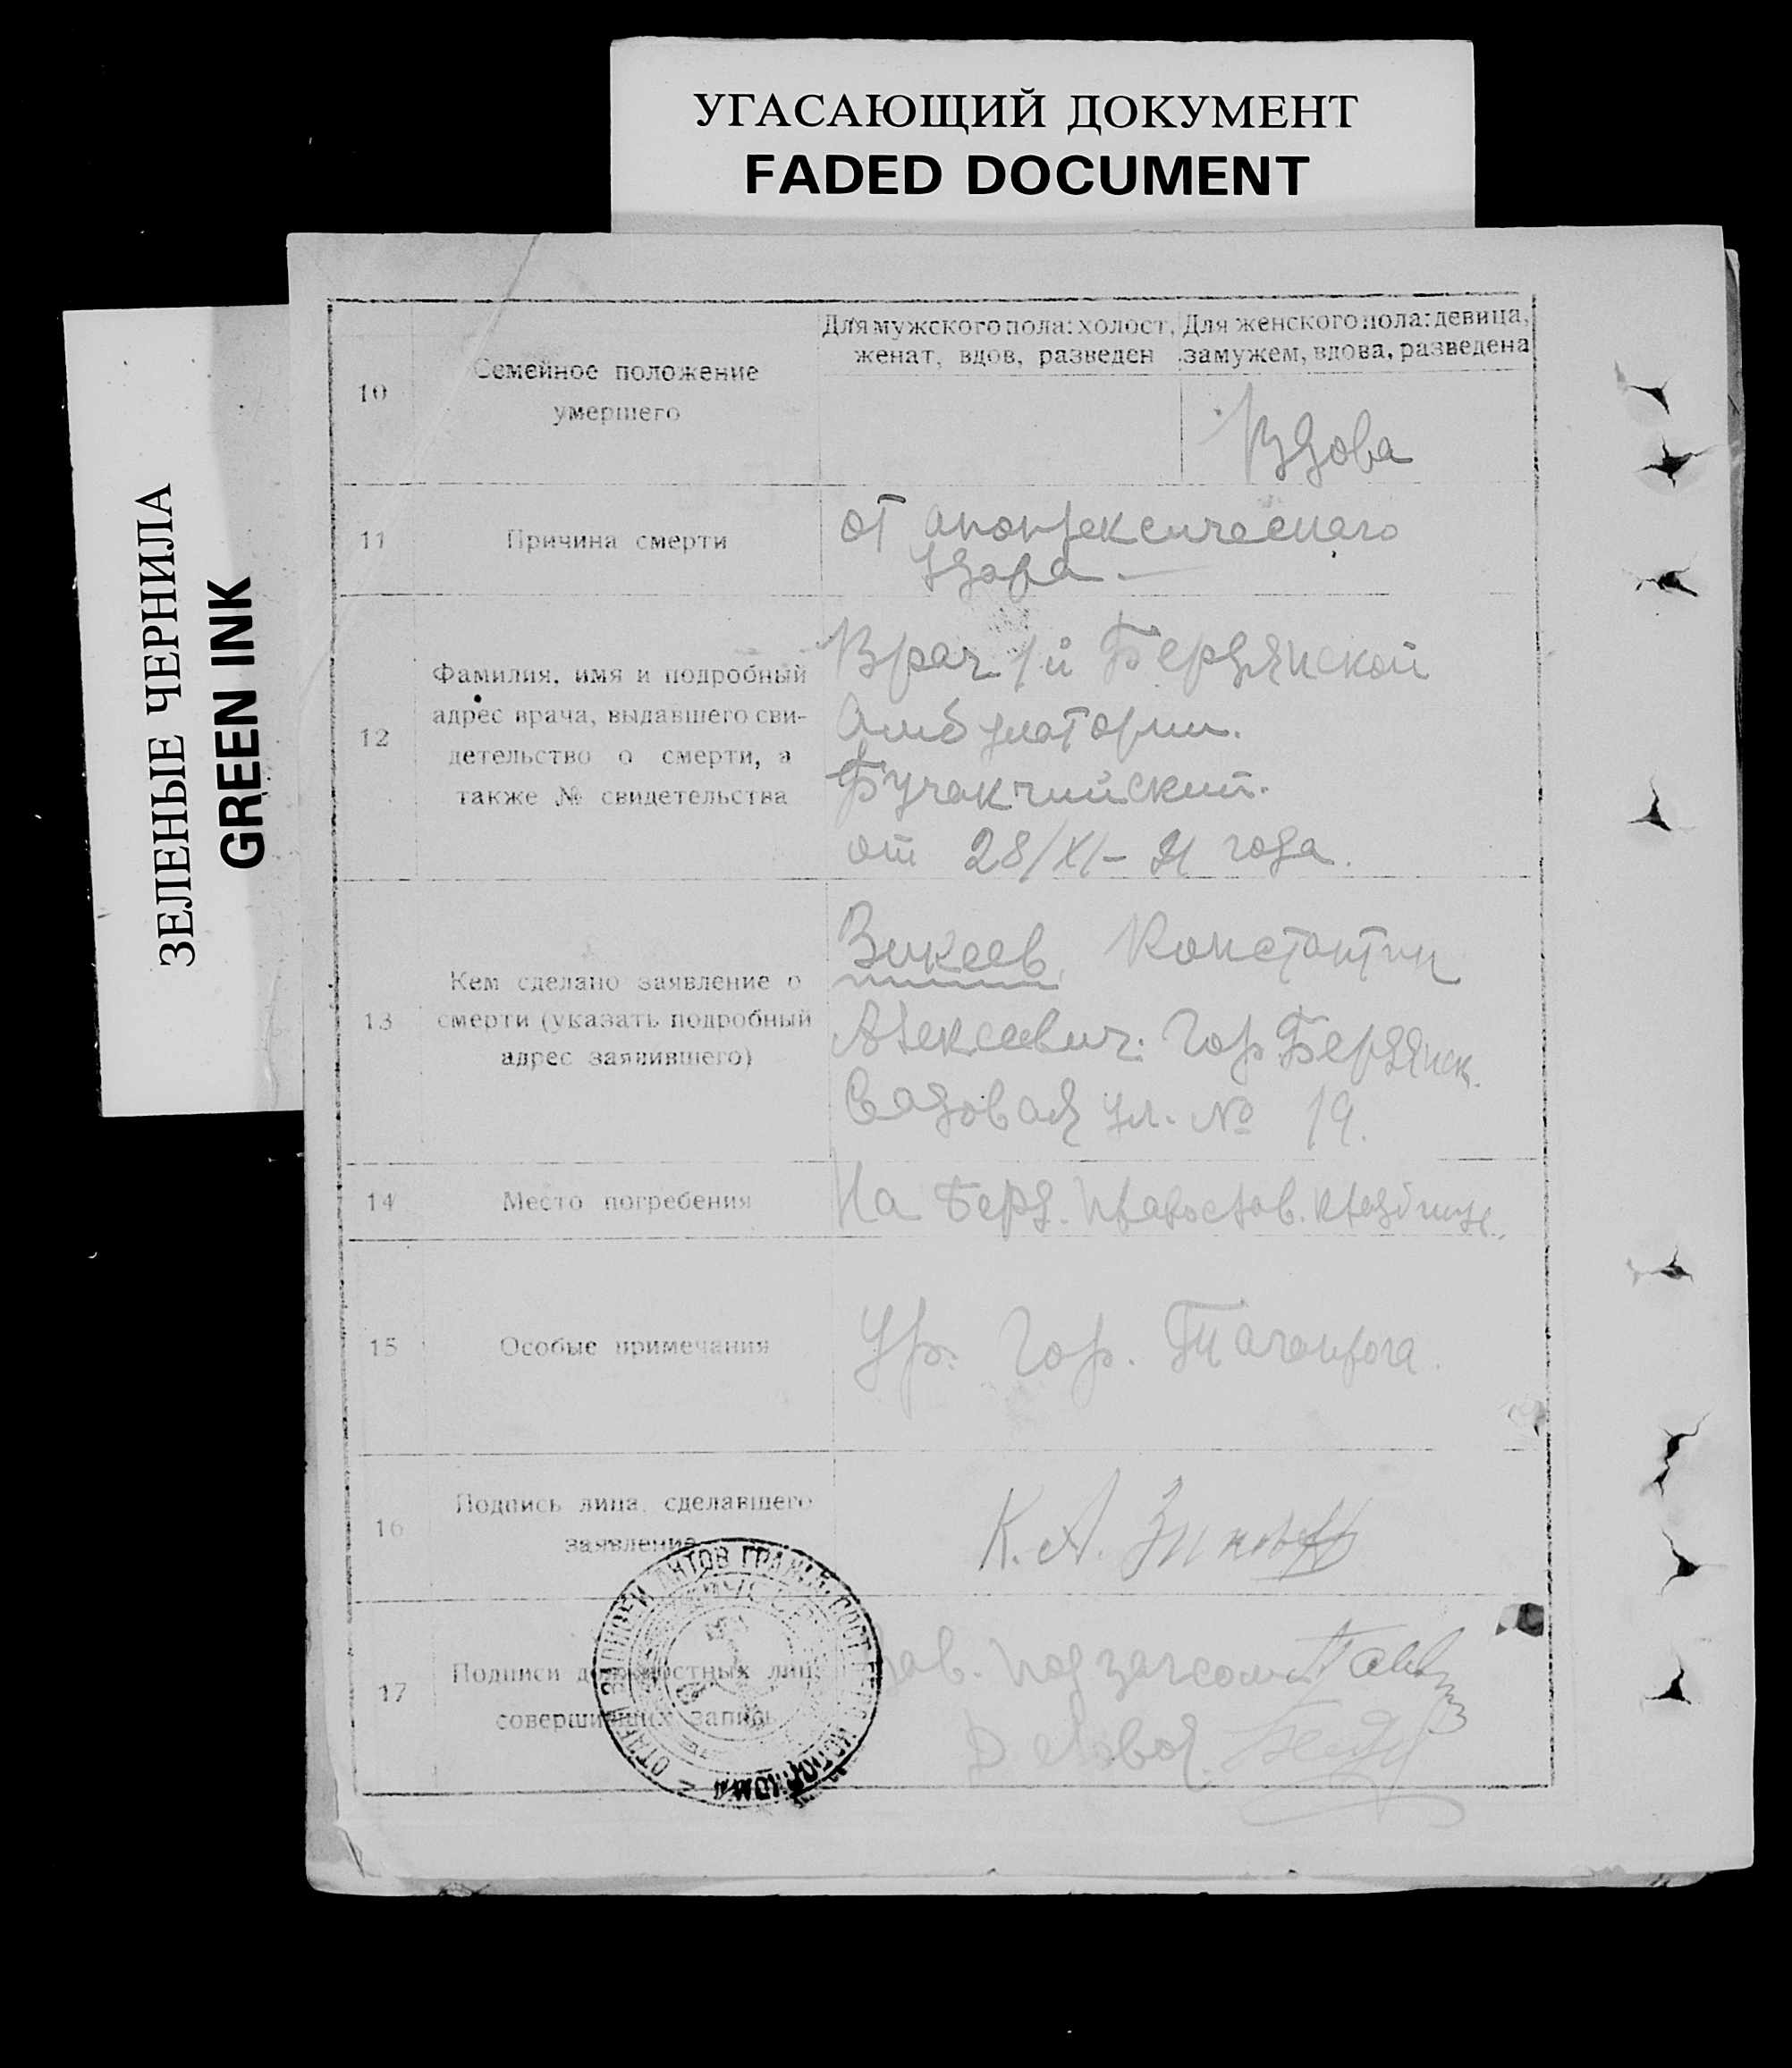 УГАСАЮЩИЙ ДОКУМЕНТ
FADED DOCUMENT
ЗЕЛЕНЫЕ ЧЕРНИЛА
GREEN INK
Для мужского пола: холост, женат, вдов, разведен
Для женского пола: девица, замужем, вдова, разведена
10
Семейное положение
умершего
Вдова
11
Причина смерти
от апоплексического
удара.
12
Фамилия, имя и подробный
адрес врача, выдавшего сви-
детельство о смерти, а
также № свидетельства
Врач 1й Бердянской
Амбулатории.
от 28/XI – 21 года.
13
Кем сделано заявление о
смерти (указать подробный
адрес заявившего)
Зикеев Константин
Алексеевич. Гор. Бердянск.
Садовая ул. № 19.
14
Место погребения
На Берд. Православ. кладбище.
15
Особые примечания
Ур. Гор. Таганрога.
16
Подпись лица, сделавшего
заявление
К. А.
17
Подписи должностных лиц,
совершивших запись
Зав. подзагсом
Делов.
ОТДЕЛ ЗАПИСЕЙ АКТОВ ГРАЖД. СОСТ.